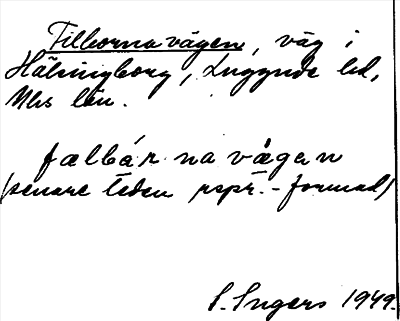 Filbornavägen, väg i
Hälsingborg, Luggude hd,
Mhs län.
fælbá.r navägan
(senare tiden rspr.-formad)
S. Ingers 1949.